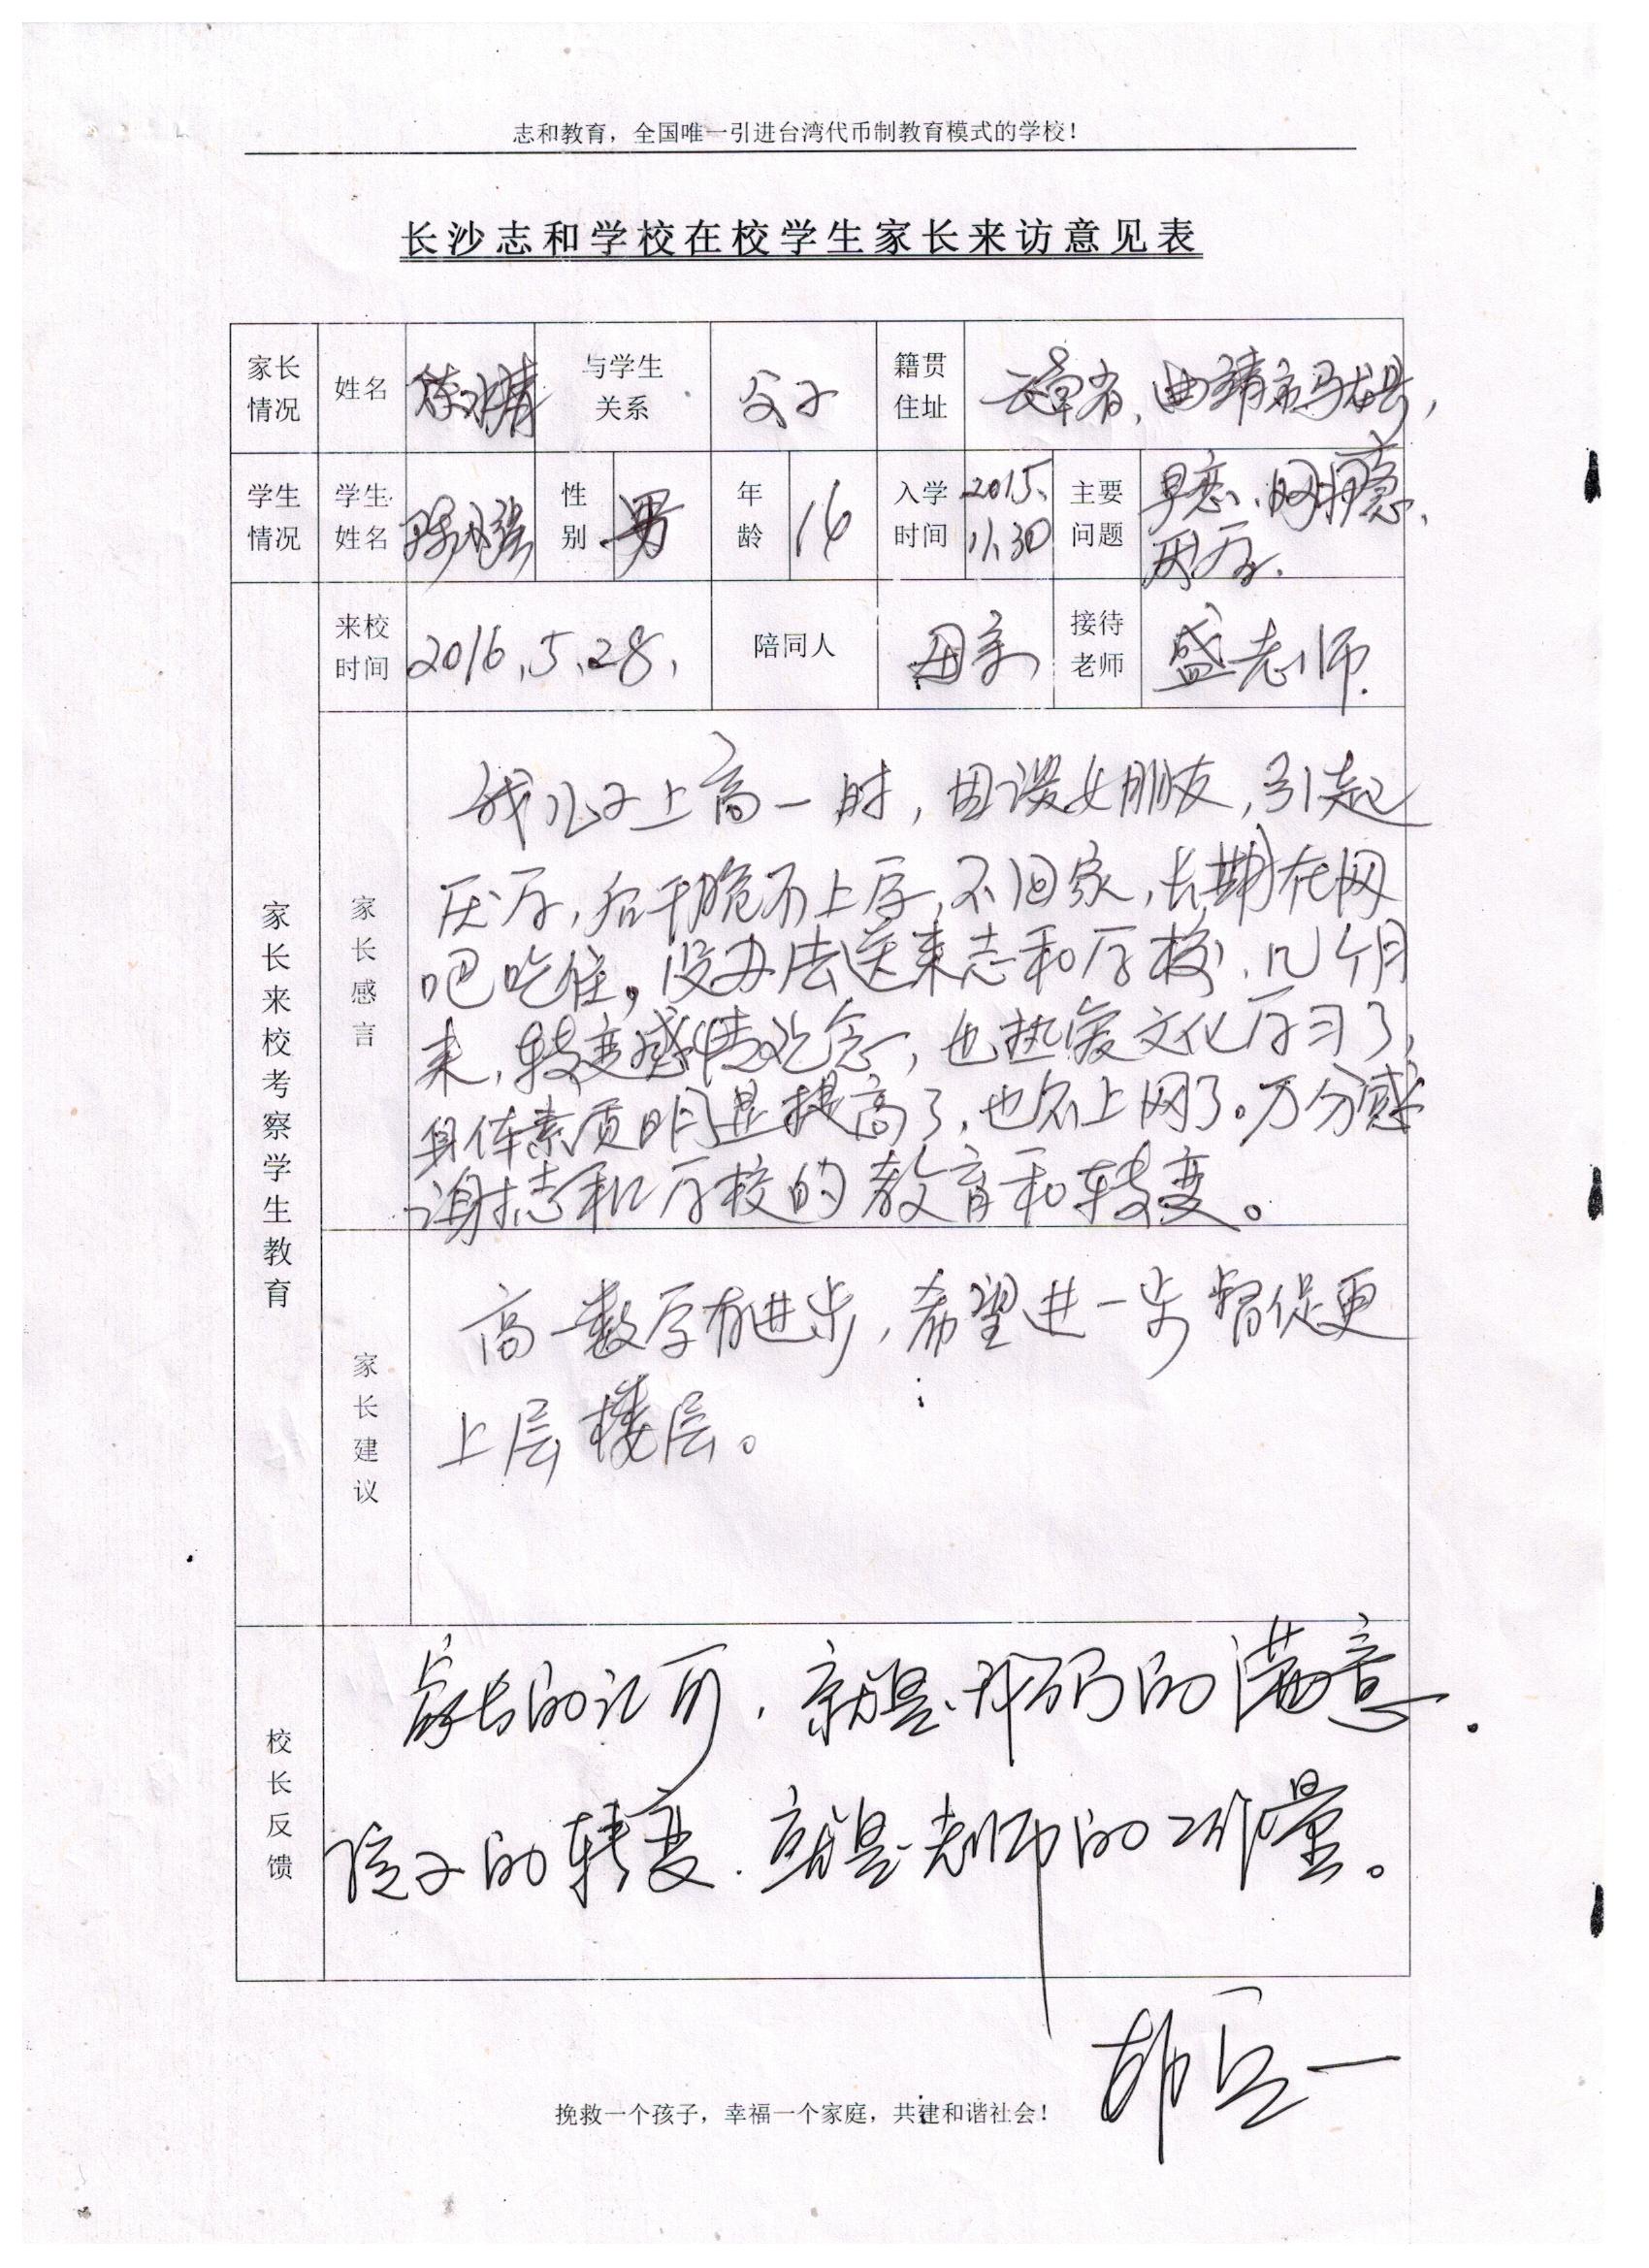 志和教育，全国唯一引进台湾代币制教育模式的学校！
长沙志和学校在校学生家长来访意见表
家长情况 姓名 与学生关系 父子 籍贯住址 云南省，曲靖市马龙县，
学生情况 学生姓名 性别 男 年龄 16 入学时间 2015.11.30 主要问题 早恋、网瘾、厌学.
家长来校考察学生教育
来校时间 2016.5.28. 陪同人 母亲 接待老师 盛老师.
家长感言
我儿子上高一时，因谈女朋友，引起
厌学，后干脆不上学，不回家，长期在网
吧吃住。没办法送来志和学校、几个月
来，转变感情观念，也热爱文化学习了，
身体素质明显提高了，也不上网了。万分感
谢志和学校的教育和转变。
家长建议
高一数学有进步，希望进一步督促更
上层楼层。
校长反馈
家长的认可，就是我们的满意.
孩子的转变.就是老师的工作量。
挽救一个孩子，幸福一个家庭，共建和谐社会！